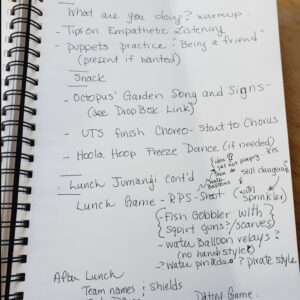 What are you doing? warmup.
- Tips on Empathetic Listening
- puppets practice "Being a friend"
(present if wanted)
Snack
- Octopus' Garden Song and Signs -
(see DropBox Link)
- UTS finish Choreo - Start to Chorus
- Hoola Hoop Freeze Dance (if needed)
Lunch Jumanji cont'd
idea
if not playing RPS
then still dangerous
water balloons
Lunch Game - RPS - Shoot (with sprinkler)
- Fish Gobbler with
squirt guns?/scarves
- water Balloon relays?
(no hands style)
? Water pinadas? pirate style
After Lunch
Team names ; shields
Game.